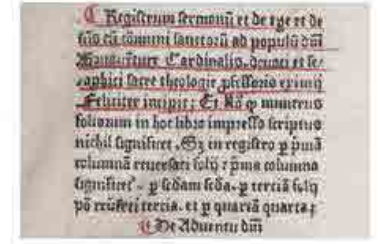 Registrum sermonū et de tpe et de
scīs cū cōmuni sanctorū ad populū dñi
Bonauēture Cardinalis, deuoti et se-
raphici sacre theologie pfessoris eximij
Feliciter incipit; Et Nō ꝙ numerus
foliorum in hoc libro impresso scriptus
nichil significet. Sꝫ in registro ꝑ pͥmā
columnā reuersati folij; pͥma columna
significet. ꝑ scdam scda. ꝑ terciā folij
pō tercia. et ꝑ quartā quarta;
De Aduentu dñi